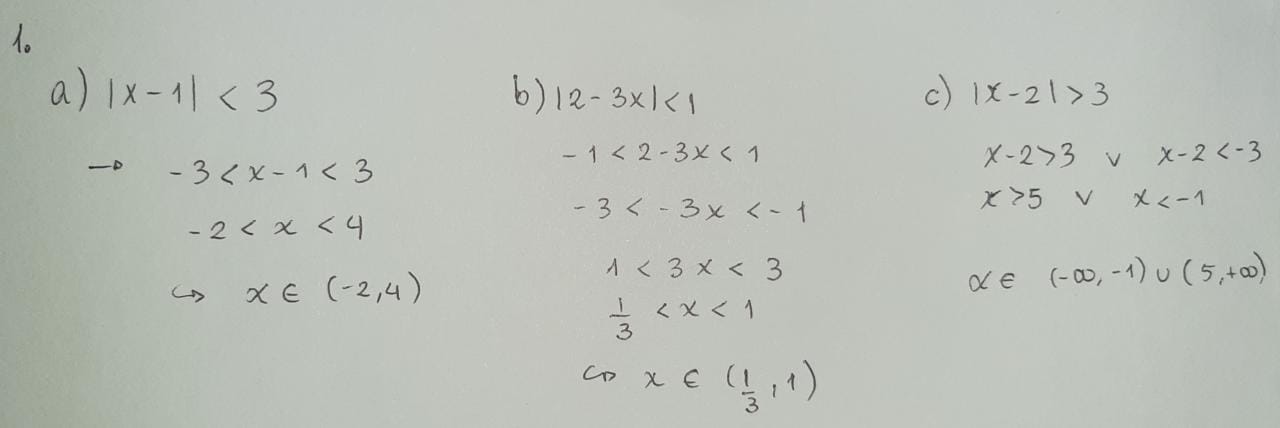 1.
a) |x-1| < 3
→ -3 < x-1 < 3
-2 < x < 4
↪ x ∈ (-2,4)
b) |2-3x| < 1
-1 < 2-3x < 1
-3 < -3x < -1
1 < 3x < 3
1/3 < x < 1
↪ x ∈ (1/3, 1)
c) |x-2| > 3
x-2>3 ∨ x-2<-3
x>5 ∨ x<-1
x ∈ (-∞,-1) ∪ (5,+∞)